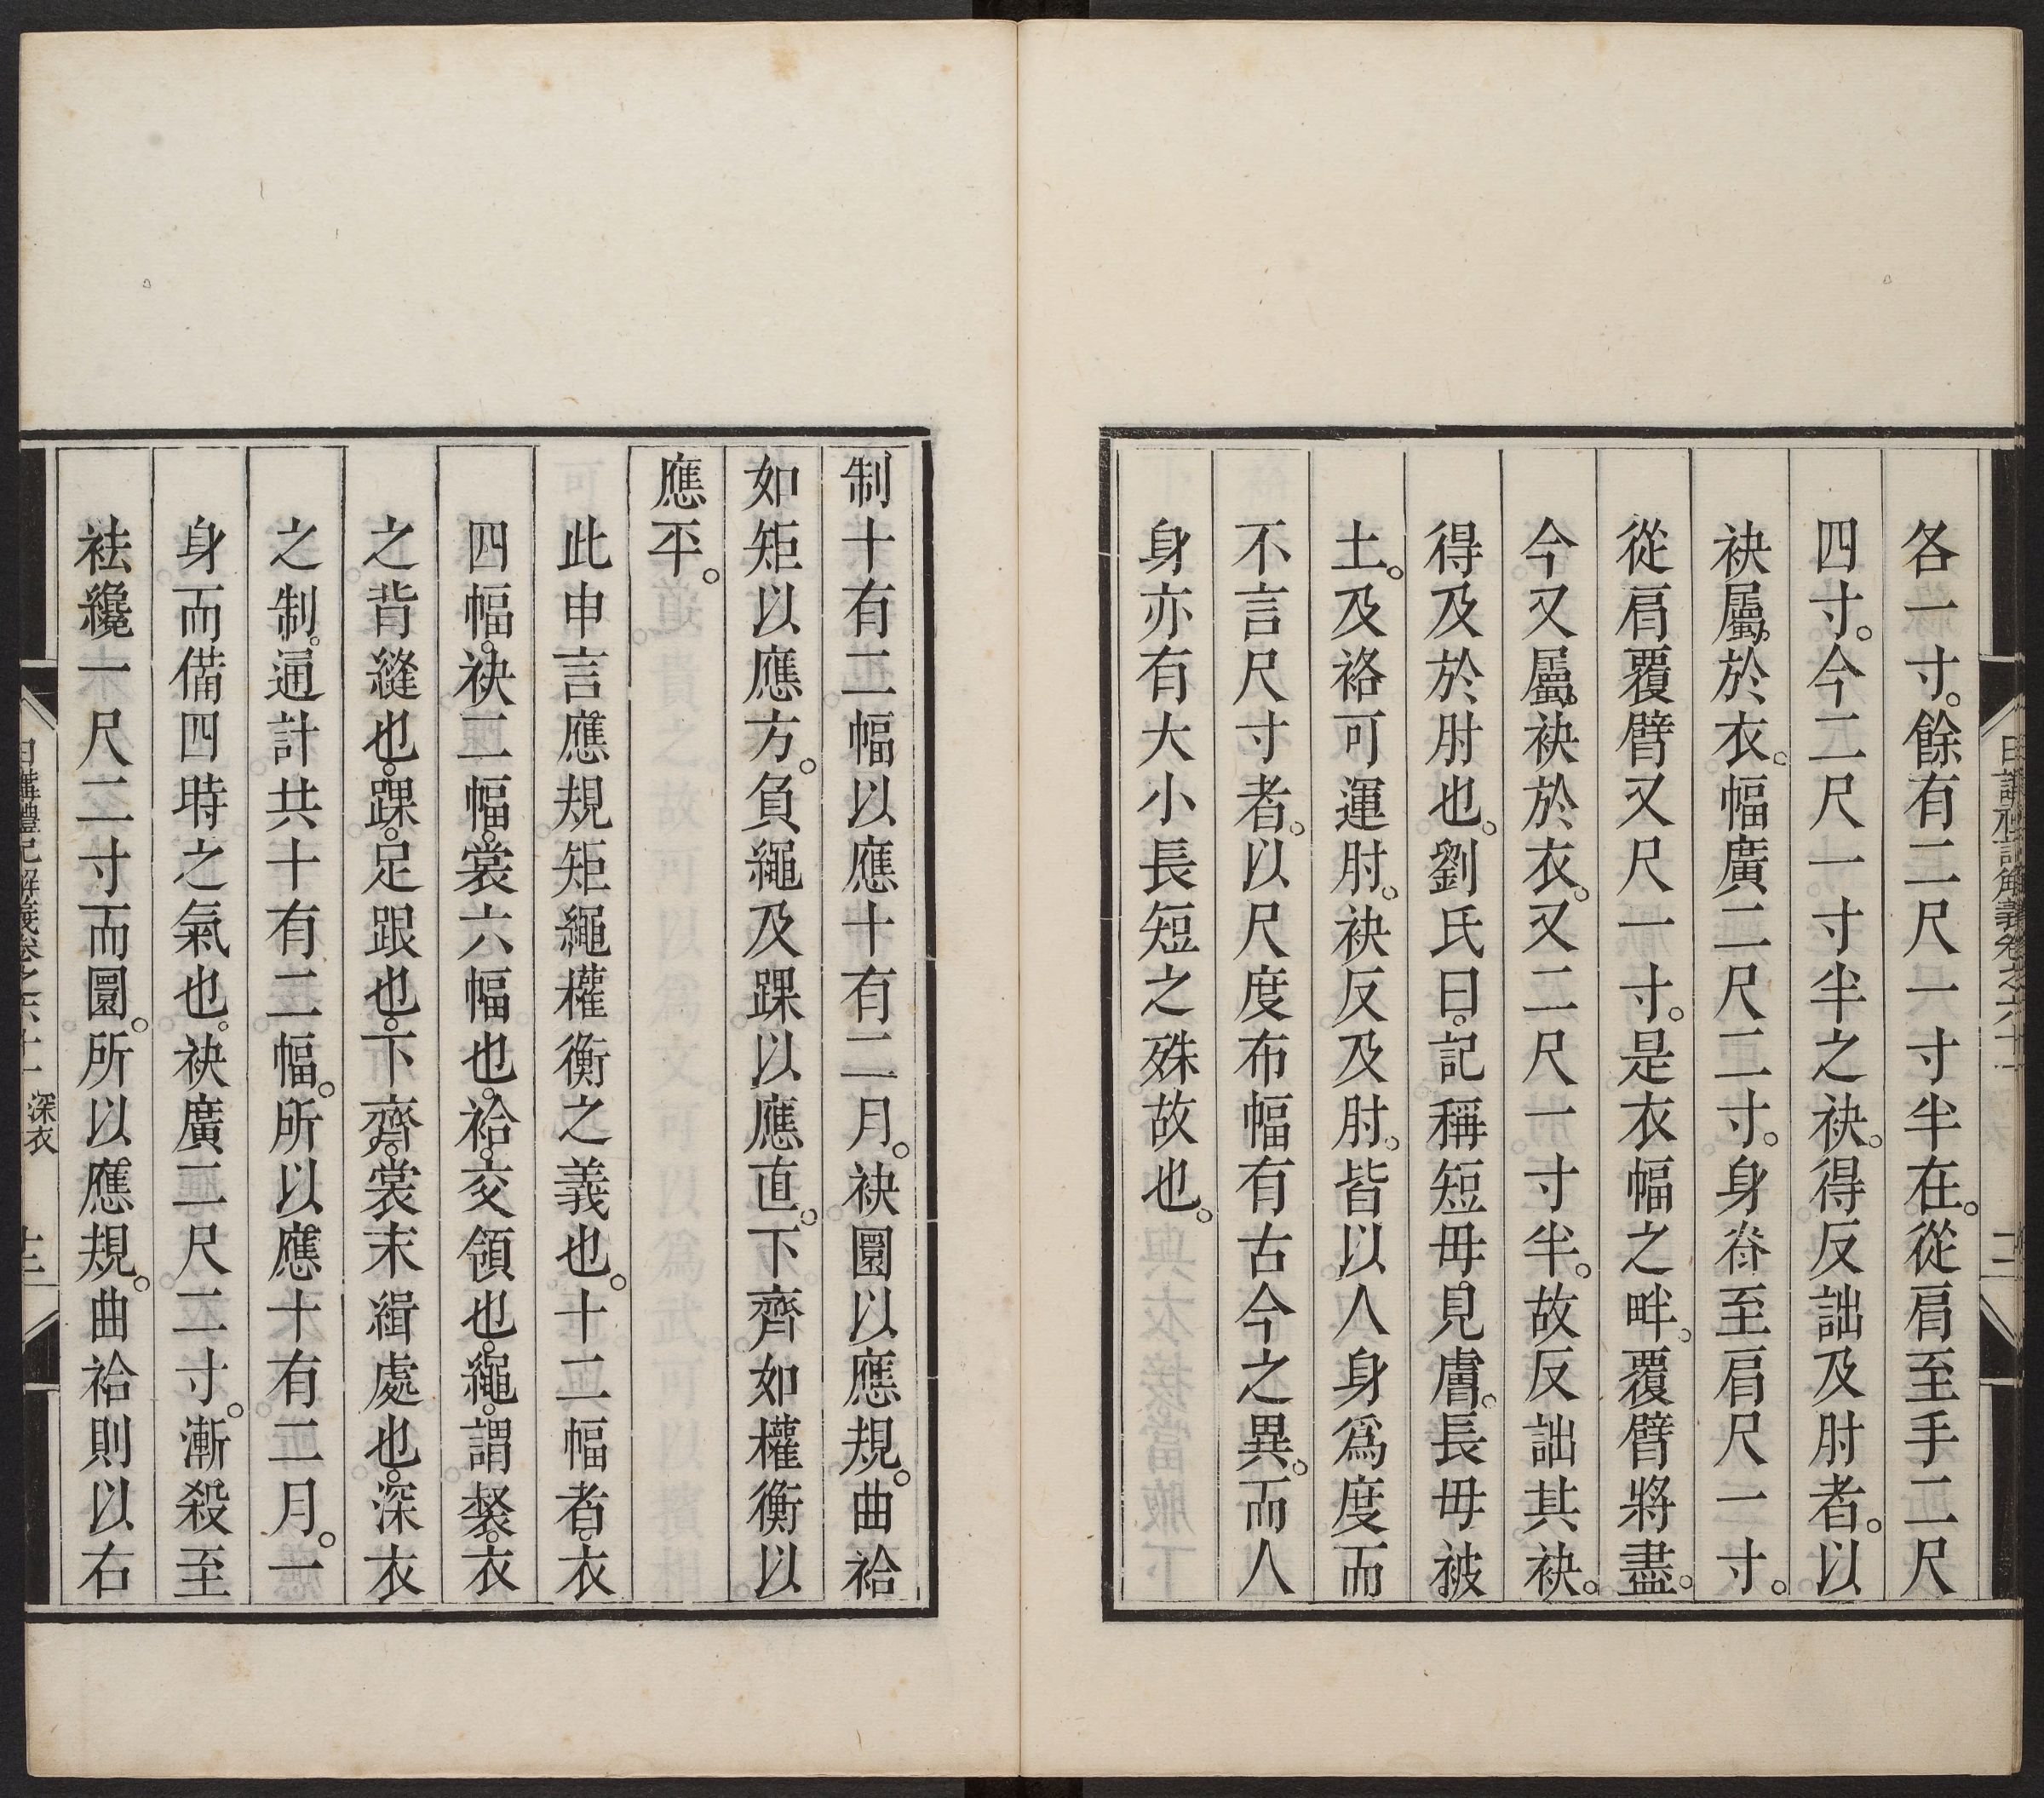 各一寸。餘有二尺一寸半在。從肩至手二尺
四寸。今二尺一寸半之袂。得反詘及肘者。以
袂屬於衣。幅廣二尺二寸。身脊至肩尺一寸。
從肩覆臂又尺一寸。是衣幅之畔。覆臂將盡。
今又屬袂於衣。又二尺一寸半。故反詘其袂。
得及於肘也。劉氏曰。記稱短毋見膚。長毋被
土。及袼可運肘。袂反及肘。皆以人身爲度而
不言尺寸者。以尺度布幅有古今之異。而人
身亦有大小長短之殊故也。
制十有二幅以應十有二月。袂圜以應規。曲袷
如矩以應方。負繩及踝以應直。下齊如權衡以
應平。
此申言應規矩繩權衡之義也。十二幅者。衣
四幅。袂二幅。裳六幅也。袷。交領也。繩。謂裻。衣
之背縫也。踝。足跟也。下齊。裳末緝處也。深衣
之制。通計共十有二幅。所以應十有二月。一
身而備四時之氣也。袂廣二尺二寸。漸殺至
袪纔一尺二寸而圜。所以應規。曲袷則以右
日講禮記解義卷之六十一 深衣 十三